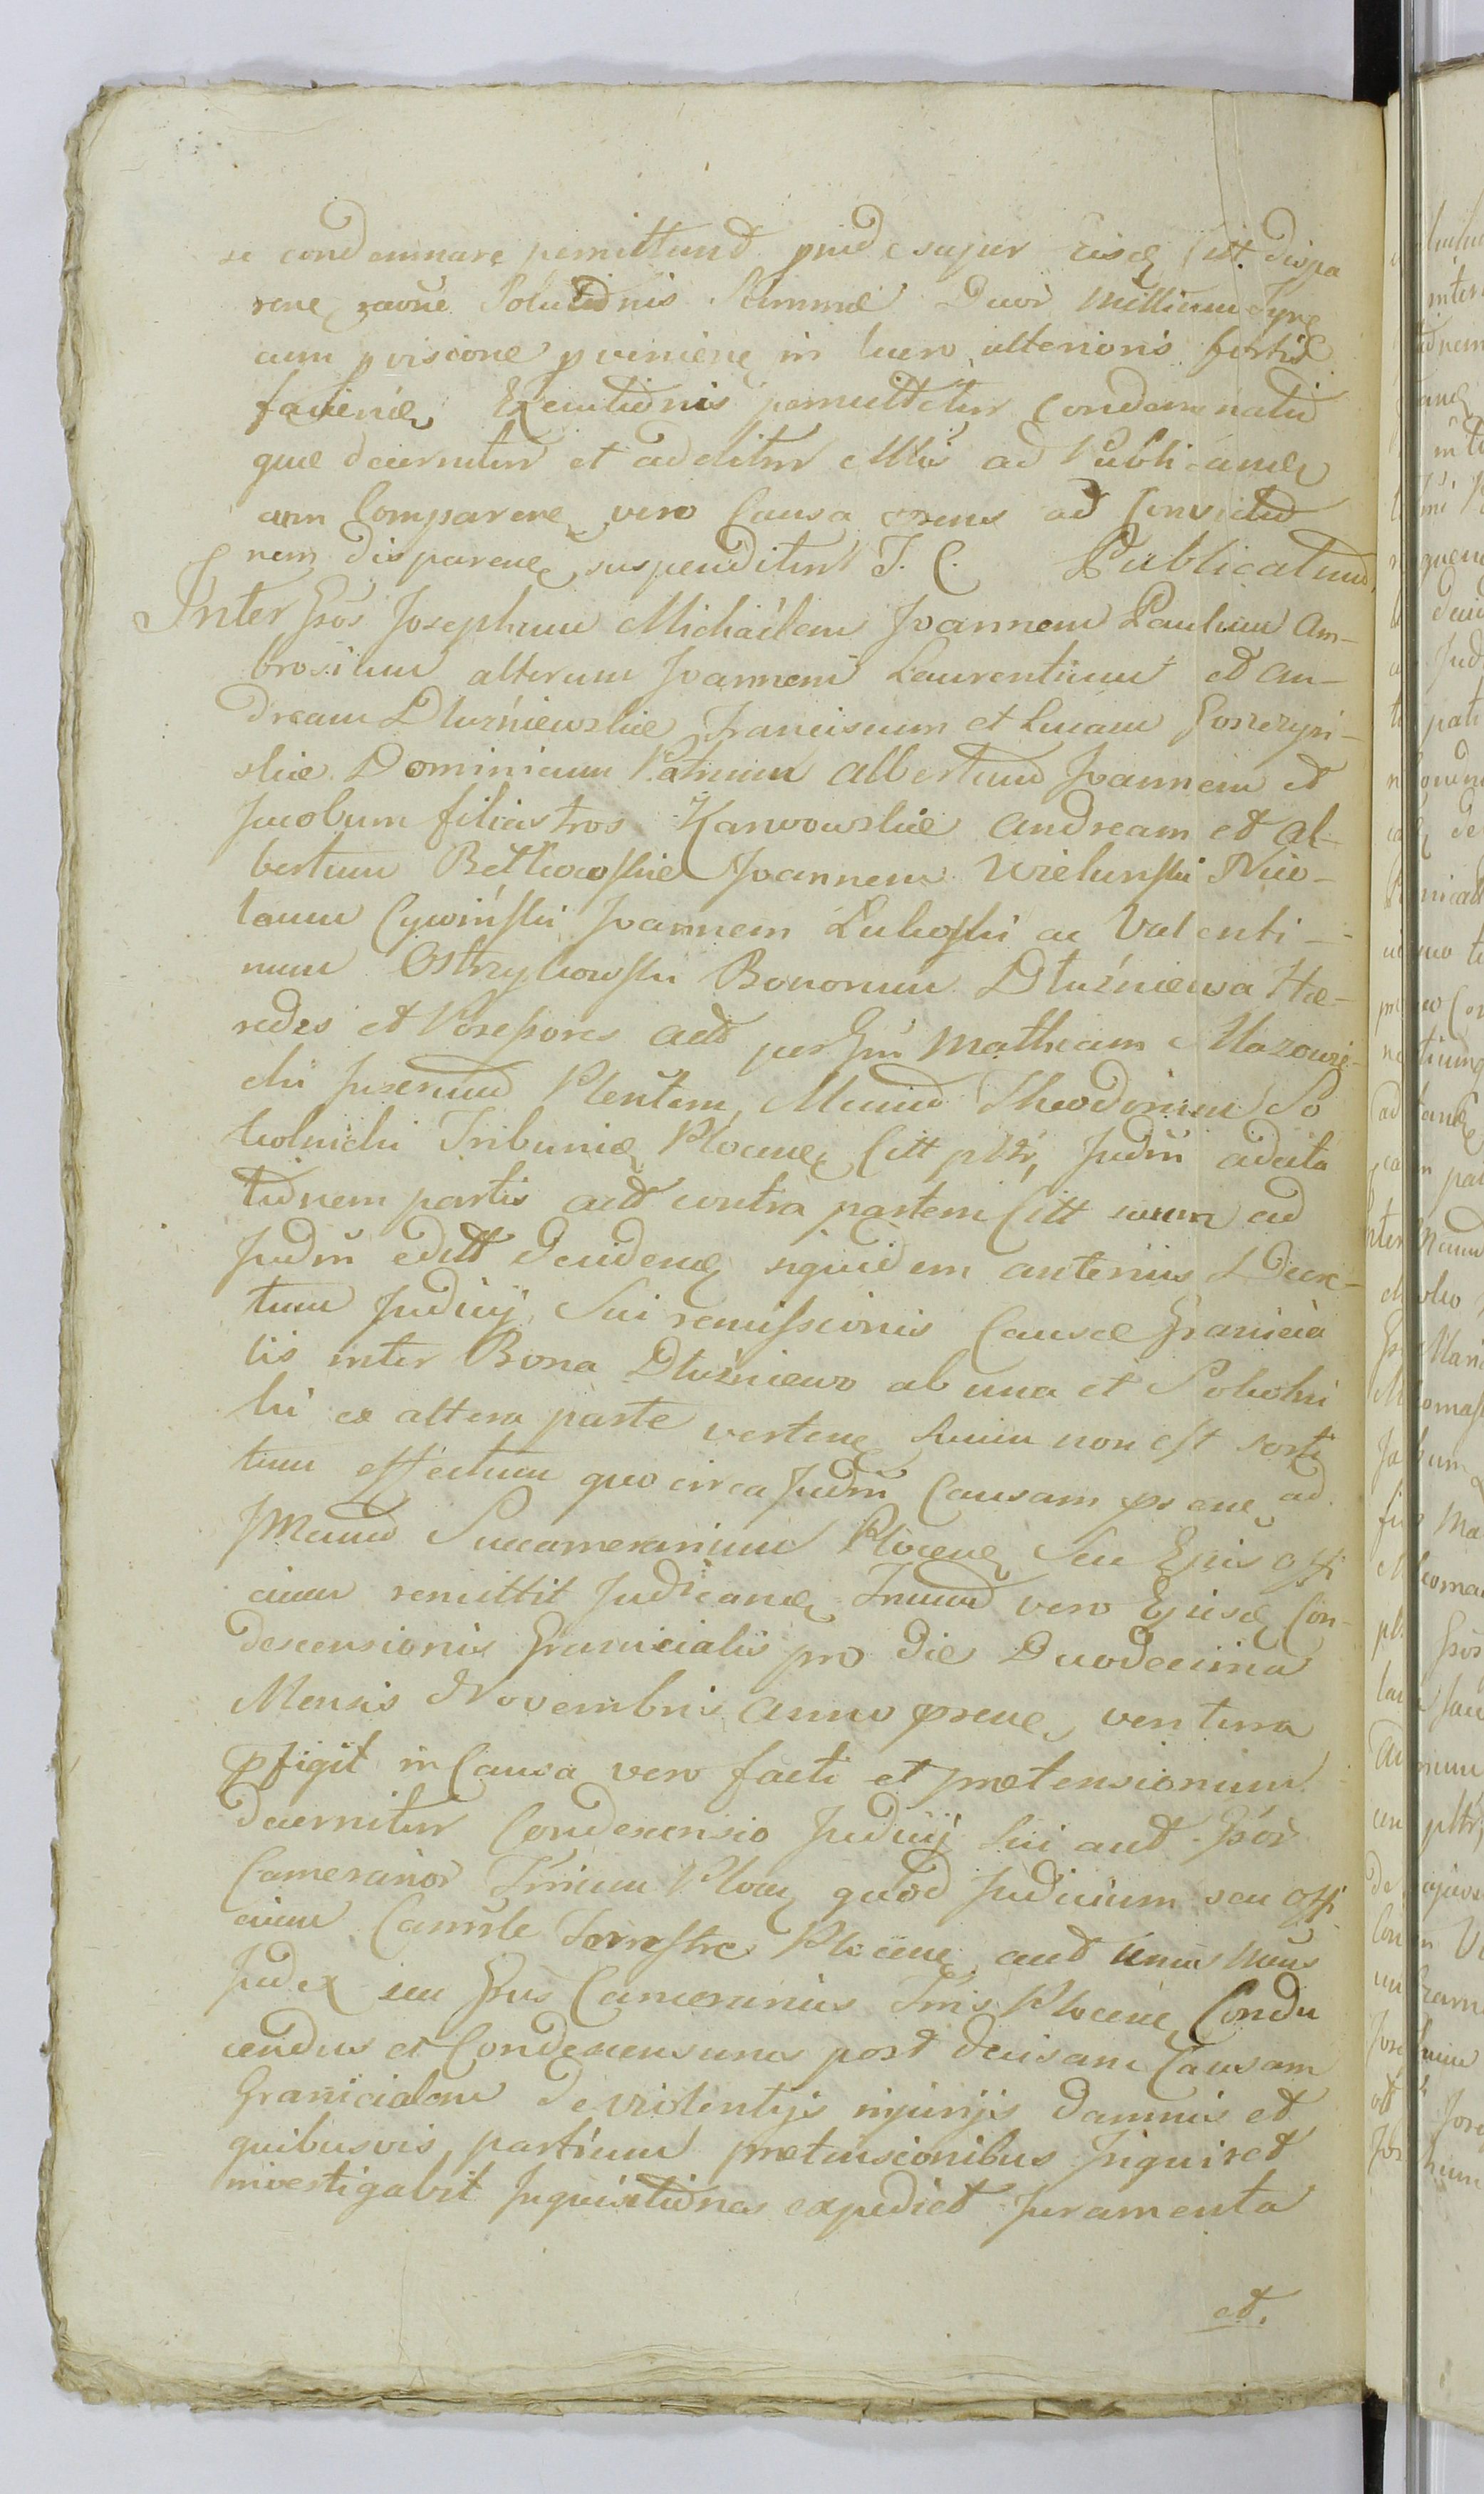 se condemnare permittend super Eisd Citt. dispa
rene, raõne Solutionis Summæ Duor Millium
cum provisione provenienë in lucro ulterioris fortis
faciendæ Executionis permittitur Condemnatio
quæ decernitur et additur Mtĩi ad Publicanda
cum Comparene vero Causa prens ad Convictio
nem disparene suspenditur J. C. Publicatum
Inter Gsos Josephum Michaelem Joannem Paulum Am-
brosium alterum Joannem Laurentium et An-
dream Dluzniewskie Franciscum et Lucam Goszczyn-
skie Dominicum Patruum Albertum Joannem et
Jacobum filiastros Karwowskie Andream et Al-
bertum Betkowskie Joannem Wielunski Nico-
laum Cywiński Joannem Lukoski ac Valenti-
num Ostrzykowski Bonorum Dłużniewa Hæ-
redes et Possessores act per Gsũ Mathiam Mazowie-
cki Juratum Plentem, Mcum Theodorum So
kolnicki Tribunũ Plocenë Citt pltr, Judm ad cita
tionem partis act contra partem Citt suum ad
Judm edit Decidene siquidem anterius Decre-
tum Judicij Sui remissionis Causæ Granicia
lis inter Bona Dłużniewo ab una et Sokolni
ki ex altera parte vertene suum non est sorti
tum effectum quocirca Judm Causam prene ad
JMcum Succamerarium Plocene Seu Ejus offi
cium remittit Judicandæ Tmum vero Ejusd Con-
descensionis Granicialis pro die Duodecima
Mensis Novembris anno prene, ventura
pfigit in Causa vero facti et prætensionum
decernitur Condescensio Judicij Sui aut Gsor
Camerarior Trrium Plocen quod Judicium seu offi
cium Camrle Terrestre Plocene aut unus Mcus
Judex seu Gsus Camerarius Tris Plocene Condu
cendus et Condescensurus post decisam Causam
Granicialem de violentijs injurijs damnis et
quibusvis partium prætensionibus Inquiret
investigabit Inquisitiones expediet Juramenta
et.